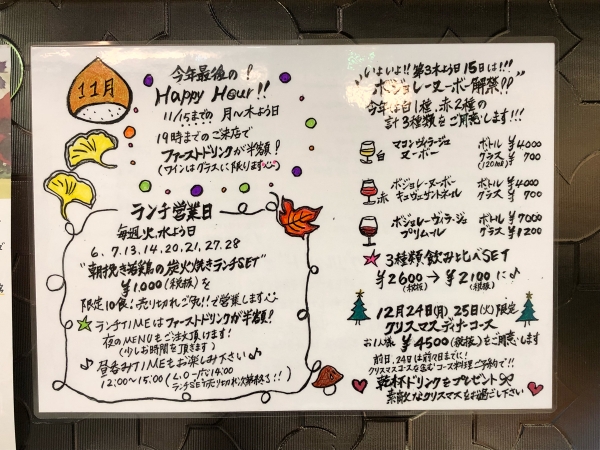 11月
今年最後の!
Happy Hour!!
11/15までの 月〜木よう日
19時までのご来店で
ファーストドリンクが半額!
(ワインはグラスに限ります)
ランチ営業日
毎週火、水よう日
6.7.13.14.20.21.27.28
"朝挽き若鶏の炭火焼きランチSET"
¥1,000(税抜)を
限定10食!売り切れご免!!で営業します
ランチTIMEはファーストドリンクが半額!
夜のMENUもご注文頂けます!
(少しお時間を頂きます)
昼呑みTIMEもお楽しみ下さい♪
12:00〜15:00 (L.O-14:00
ランチSET売り切れ次第終了!!)
いよいよ!!第3木よう日15日は!!!
"ボジョレーヌーボー解禁!?"
今年は白1種、赤2種の
計3種類をご用意します!!!
白 マコンヴィラージュ ヌーボー
ボトル ¥4000
グラス ¥700
(120ml)
赤 ボジョレーヌーボー キュヴェサントネール
ボトル ¥4000
グラス ¥700
ボジョレーヴィラージュ プリムール
ボトル ¥7000
グラス ¥1200
☆3種類、飲み比べSET
¥2600(税抜)→¥2100(税抜)に♪
12月24日(月)25日(火)限定
クリスマスディナーコース
お1人様 ¥4500(税抜)をご用意します
乾杯ドリンクをプレゼント
素敵なクリスマスをお過ごし下さい